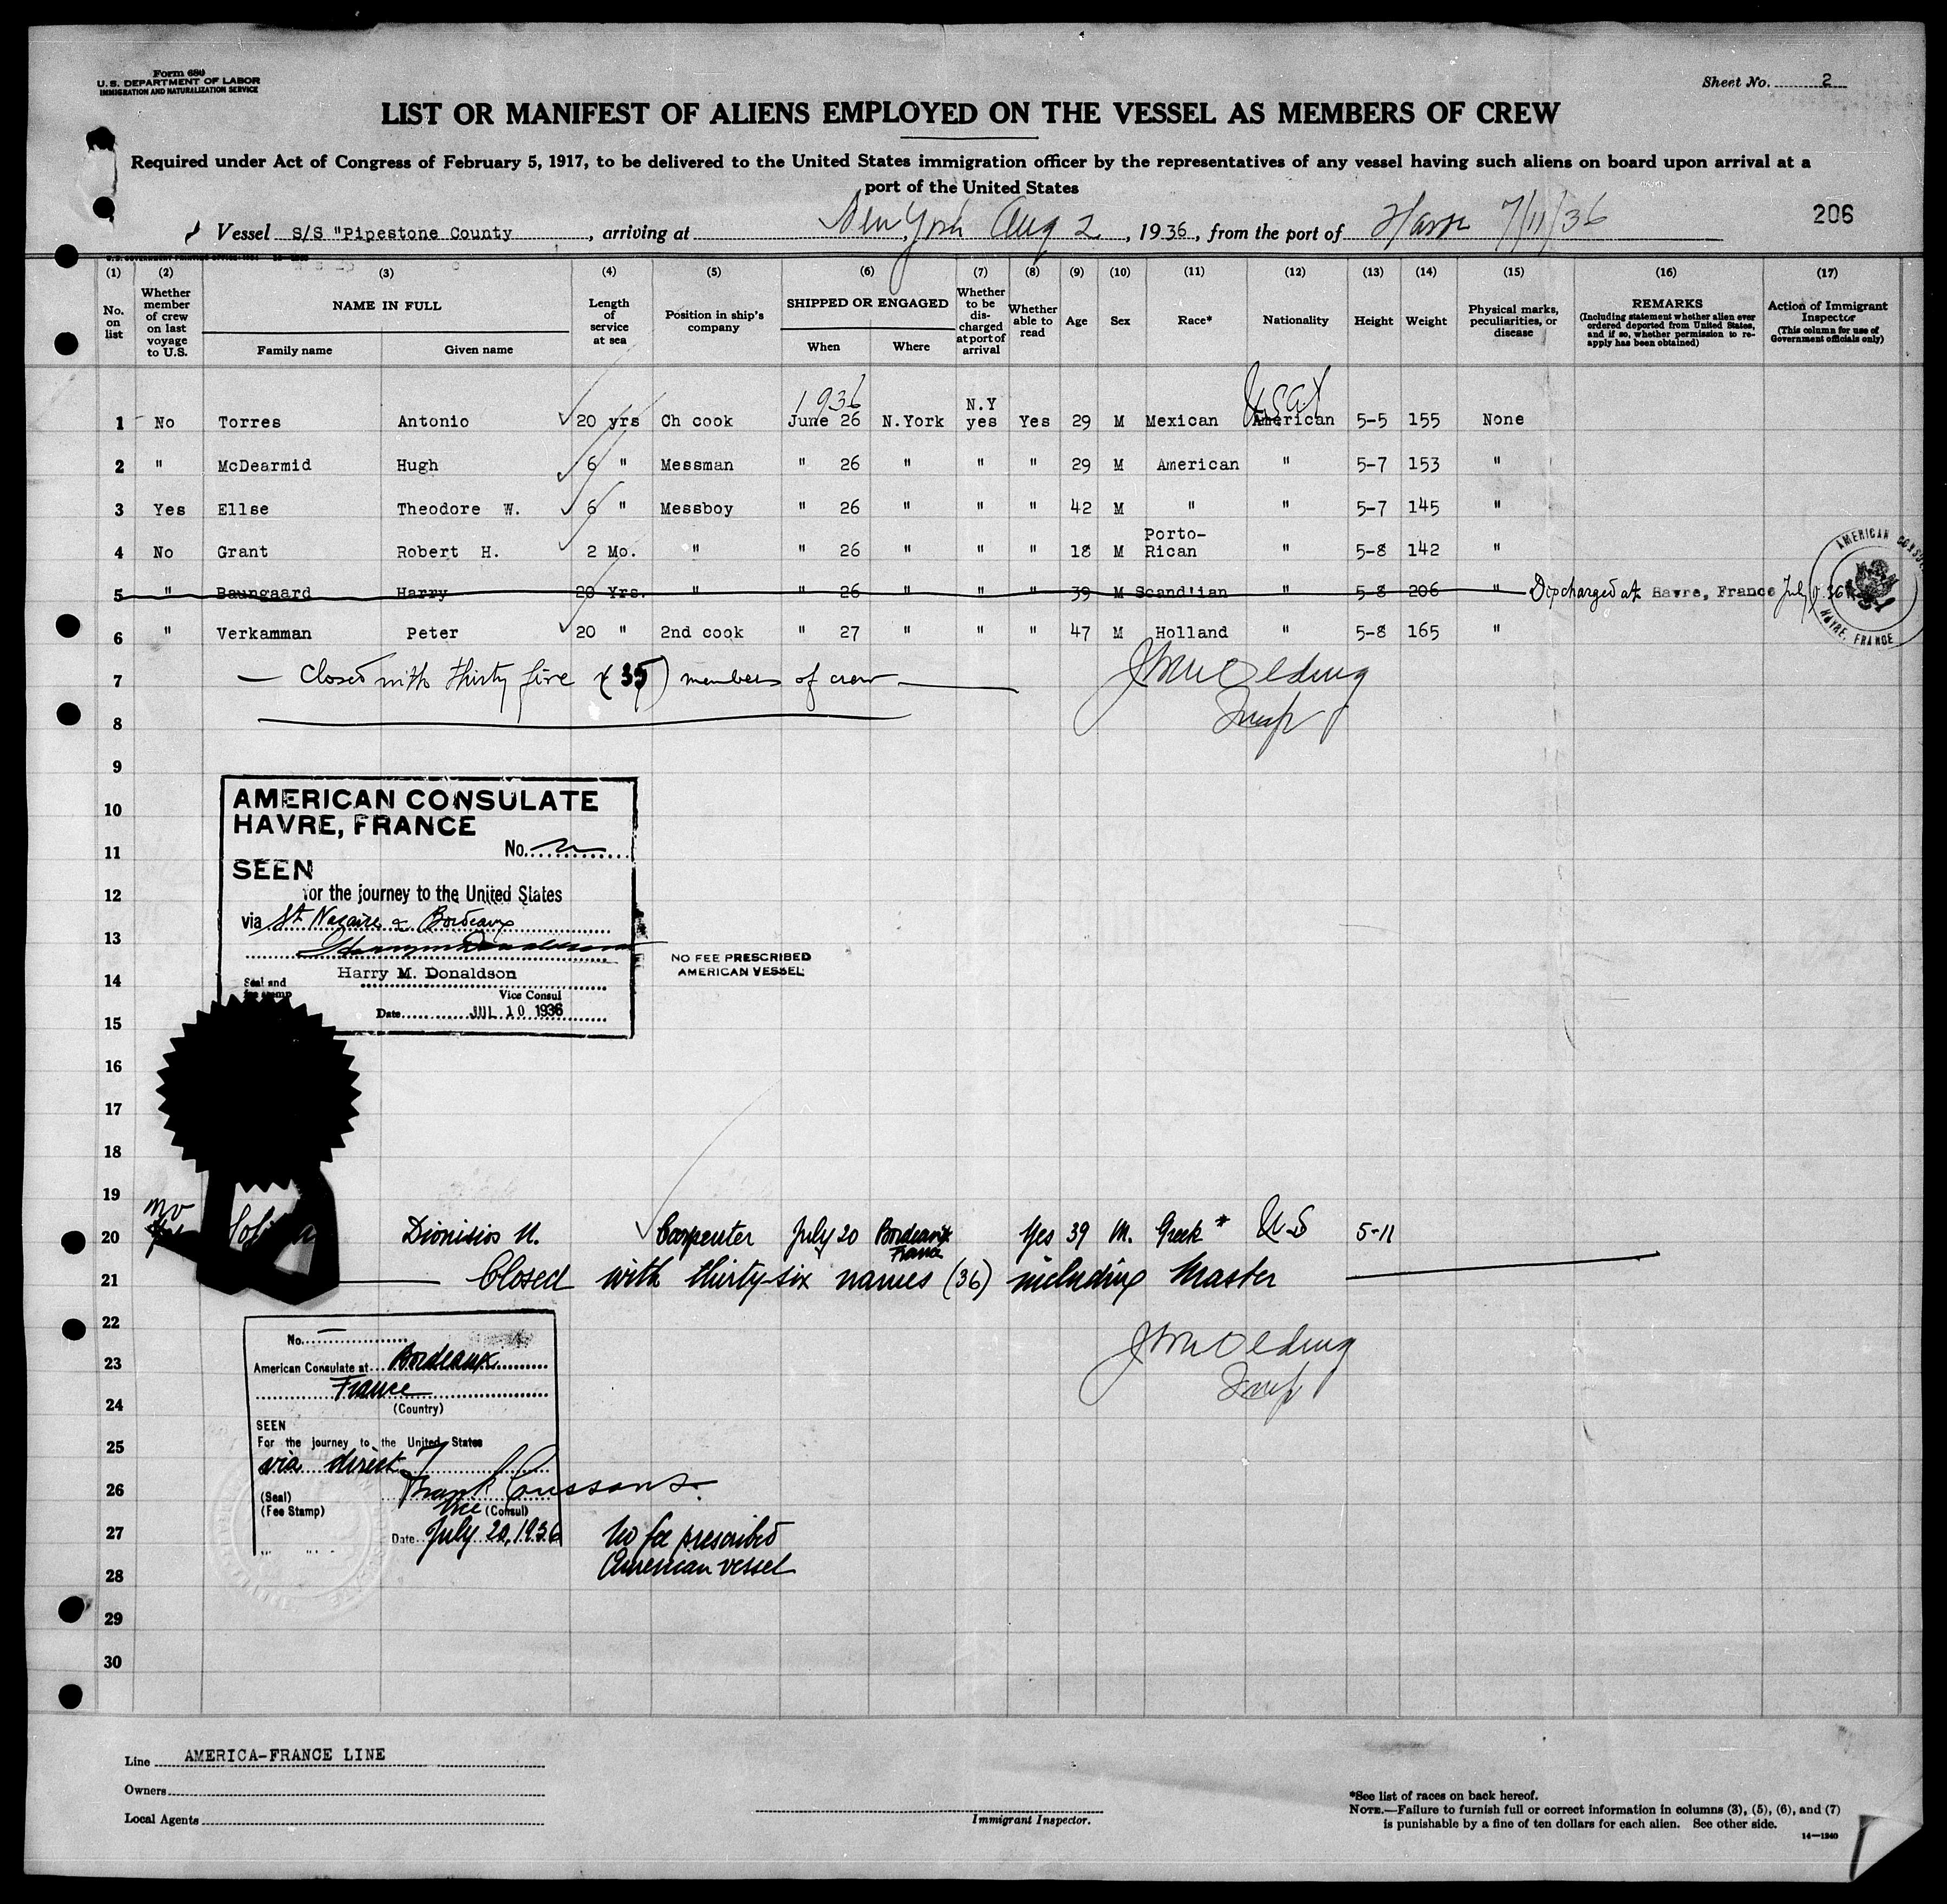 Form 680
U. S. DEPARTMENT OF LABOR
IMMIGRATION AND NATURALIZATION SERVICE
Sheet No. 2
LIST OR MANIFEST OF ALIENS EMPLOYED ON THE VESSEL AS MEMBERS OF CREW
Required under Act of Congress of February 5, 1917, to be delivered to the United States immigration officer by the representatives of any vessel having such aliens on board upon arrival at a
port of the United States
206
Vessel S/S "Pipestone County , arriving at New York Aug 2 , 1936, from the port of Havre 7/11/36
(1) (2) (3) (4) (5) (6) (7) (8) (9) (10) (11) (12) (13) (14) (15) (16) (17)
No. on list
Whether member of crew on last voyage to U.S.
NAME IN FULL
Family name Given name
Length of service at sea
Position in ship's company
SHIPPED OR ENGAGED
When Where
Whether to be discharged at port of arrival
Whether able to read
Age
Sex
Race*
Nationality
Height
Weight
Physical marks, peculiarities, or disease
REMARKS
(Including statement whether alien ever ordered deported from United States, and if so, whether permission to re-apply has been obtained)
Action of Immigrant Inspector
(This column for use of Government officials only)
1936 N.Y U.S.A.
1 No Torres Antonio 20 yrs Ch cook June 26 N.York yes Yes 29 M Mexican American 5-5 155 None
2 " McDearmid Hugh 6 " Messman " 26 " " " 29 M American " 5-7 153 "
3 Yes Ellse Theodore W. 6 " Messboy " 26 " " " 42 M " " 5-7 145 "
4 No Grant Robert H. 2 Mo. " " 26 " " " 18 M Porto-Rican " 5-8 142 "
5 " Baungaard Harry 20 Yrs. " " 26 " " " 39 M Scand'ian " 5-8 206 " Discharged at Havre, France July 36
AMERICAN CONSUL
HAVRE, FRANCE
6 " Verkamman Peter 20 " 2nd cook " 27 " " " 47 M Holland " 5-8 165 "
7 Closed with thirty five (35) members of crew
Insp
8
9
AMERICAN CONSULATE
HAVRE, FRANCE
No.
SEEN
for the journey to the United States
via St Nazaire & Bordeaux
Harry M. Donaldson
Seal and
fee stamp
Vice Consul
Date JUL 10 1936
NO FEE PRESCRIBED
AMERICAN VESSEL
10
11
12
13
14
15
16
17
18
19
20 No Dionisios N. Carpenter July 20 Bordeaux France Yes 39 M. Greek * U S 5-11
21 Closed with thirty-six names (36) including Master
Insp
22
23
24
25
26
27
28
29
30
No.
American Consulate at Bordeaux
France
(Country)
SEEN
For the journey to the United States
via direct
Frank Cussans.
(Seal)
(Fee Stamp)
Vice (Consul)
Date July 20, 1936
No fee prescribed
American vessel
Line AMERICA-FRANCE LINE
Owners
Local Agents
Immigrant Inspector.
*See list of races on back hereof.
NOTE.—Failure to furnish full or correct information in columns (3), (5), (6), and (7)
is punishable by a fine of ten dollars for each alien. See other side.
14—1240